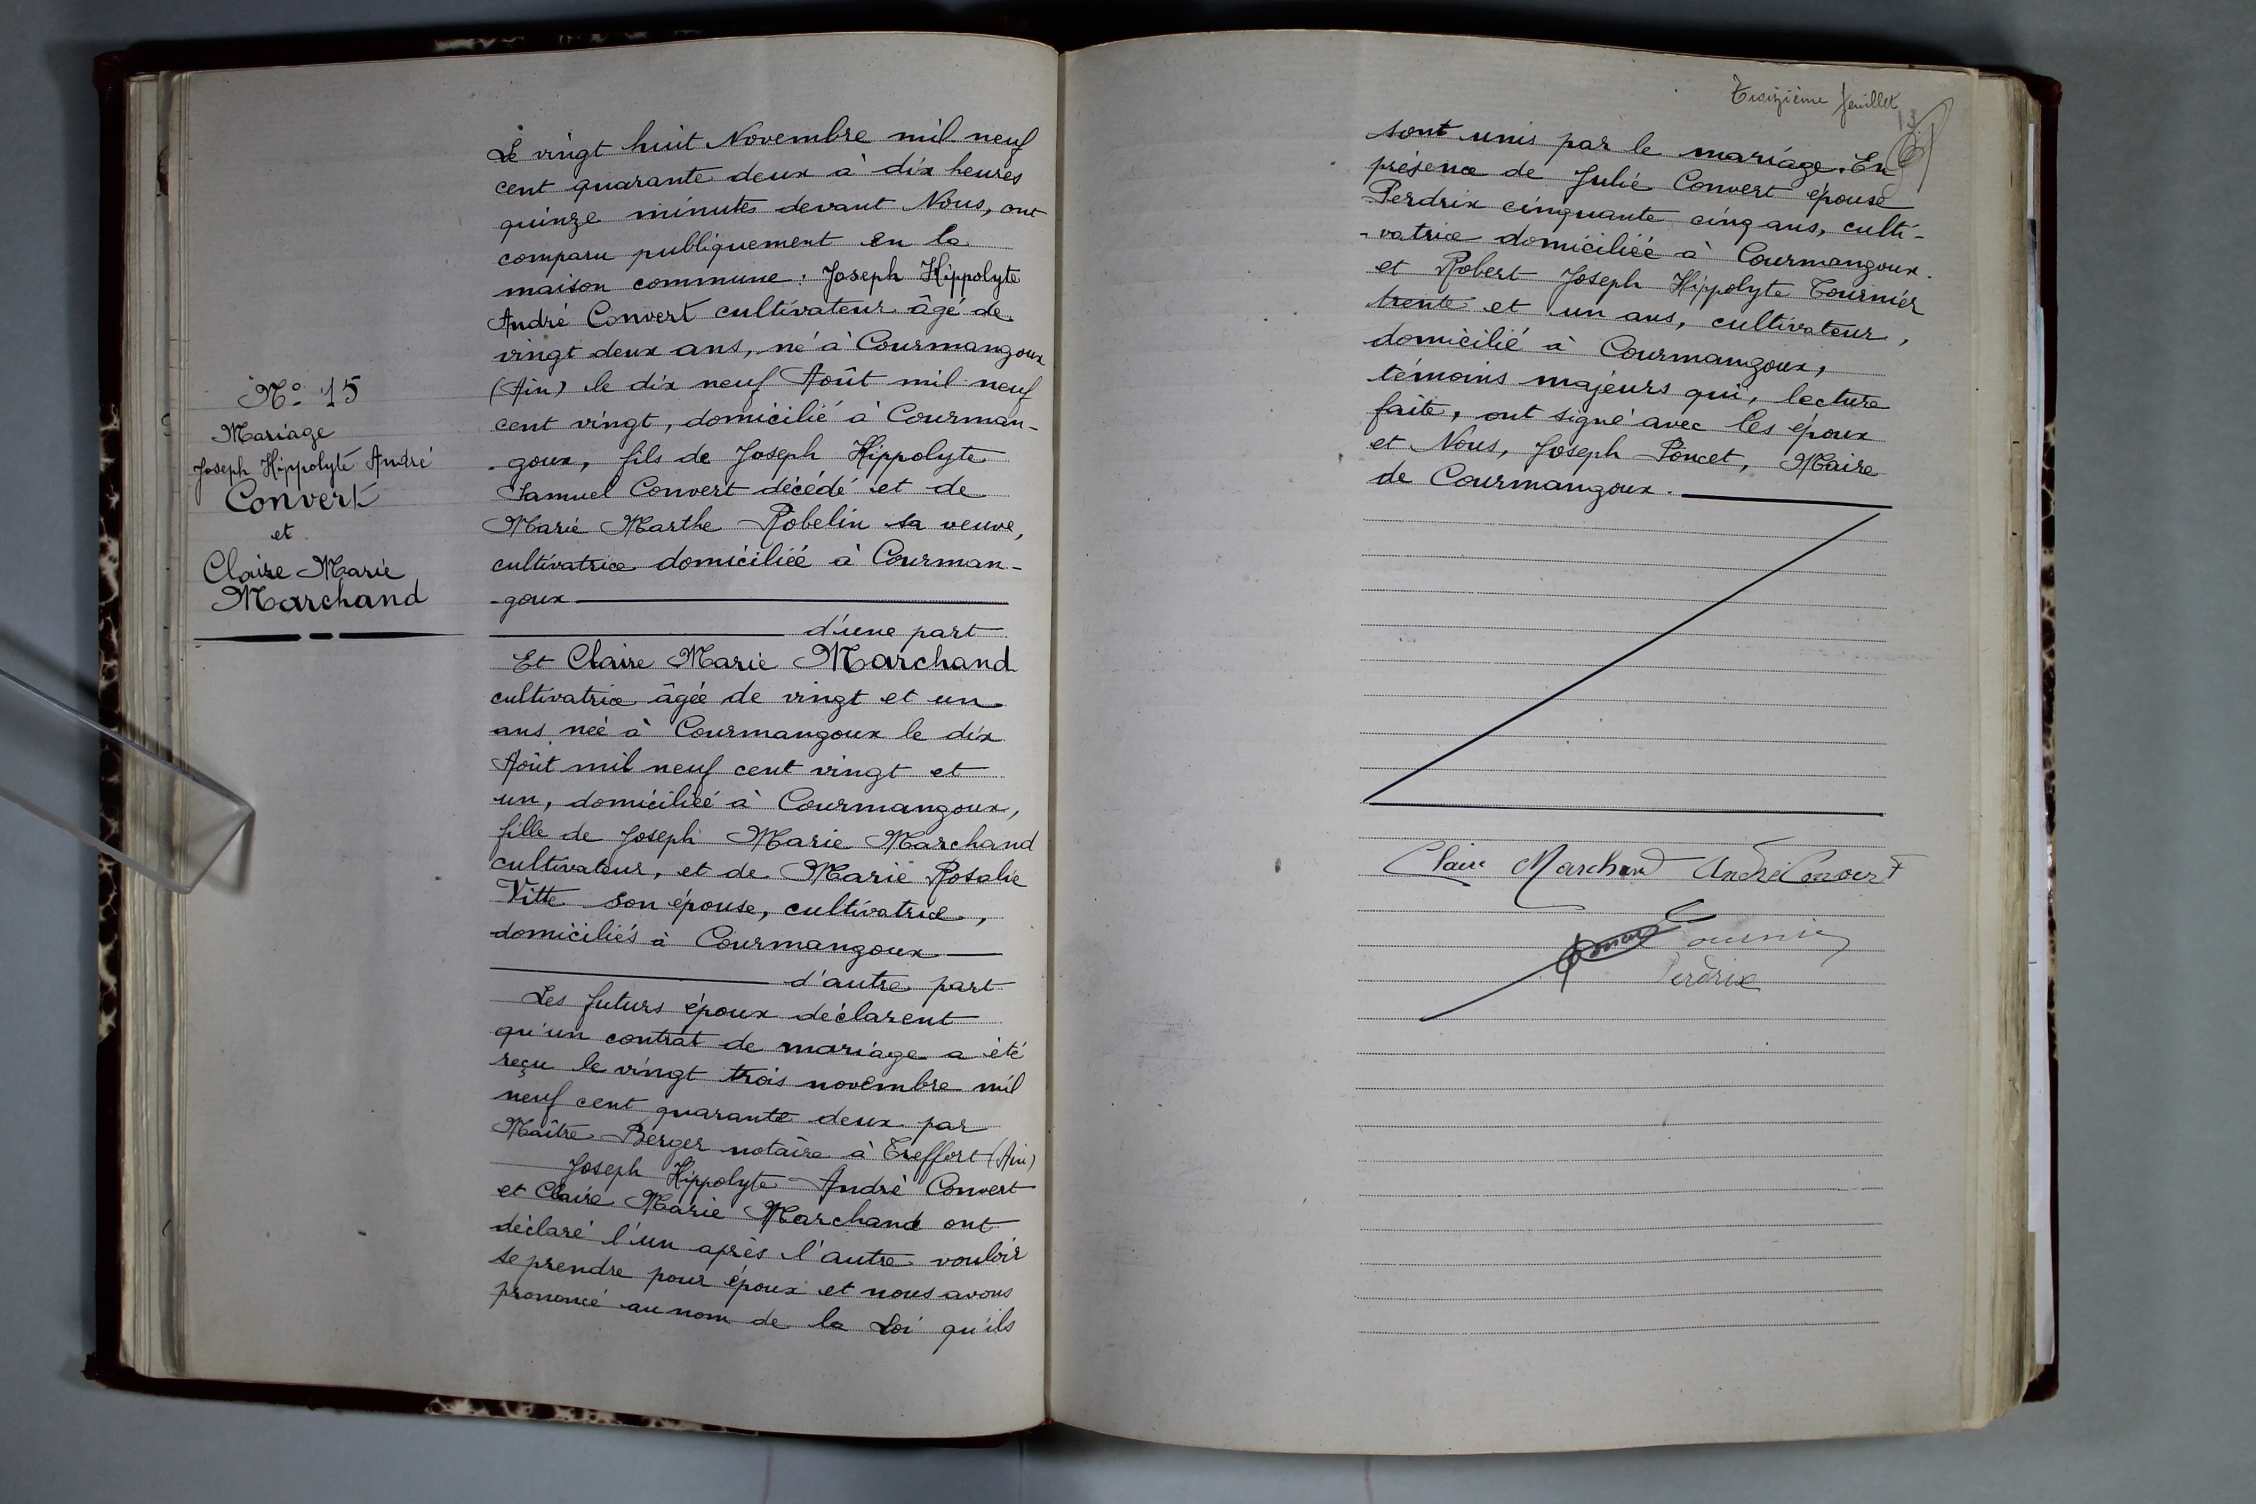 N° 15
Mariage
Joseph Hippolyte André
Convert
et
Claire Marie
Marchand
Le vingt huit Novembre mil neuf
cent quarante deux à dix heures
quinze minutes devant Nous, ont
comparu publiquement en la
maison commune : Joseph Hippolyte
André Convert cultivateur âgé de
vingt deux ans, né à Courmangoux
(Ain) le dix neuf Août mil neuf
cent vingt, domicilié à Courman-
-goux, fils de Joseph Hippolyte
Samuel Convert décédé et de
Marie Marthe Robelin sa veuve,
cultivatrice domiciliée à Courman-
-goux
d'une part
Et Claire Marie Marchand
cultivatrice âgée de vingt et un
ans née à Courmangoux le dix
Août mil neuf cent vingt et
un, domiciliée à Courmangoux,
fille de Joseph Marie Marchand
cultivateur, et de Marie Rosalie
Vitte son épouse, cultivatrice,
domiciliés à Courmangoux
d'autre part
Les futurs époux déclarent
qu'un contrat de mariage a été
reçu le vingt trois novembre mil
neuf cent quarante deux par
Maître Berger notaire à Treffort (Ain)
Joseph Hippolyte André Convert
et Claire Marie Marchand ont
déclaré l'un après l'autre vouloir
se prendre pour époux et nous avons
prononcé au nom de la Loi qu'ils
Treizième feuillet
13
sont unis par le mariage. En
présence de Julie Convert épouse
Perdrix cinquante cinq ans, culti-
-vatrice domiciliée à Courmangoux.
et Robert Joseph Hippolyte Tournier
trente et un ans, cultivateur,
domicilié à Courmangoux,
témoins majeurs qui, lecture
faite, ont signé avec les époux
et Nous, Joseph Poncet, Maire
de Courmangoux.
Claire Marchand André Convert
Tournier
Perdrix